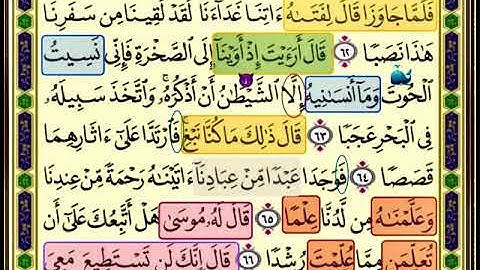 فَلَمَّا جَاوَزَا قَالَ لِفَتَىٰهُ ءَاتِنَا غَدَآءَنَا لَقَدۡ لَقِينَا مِن سَفَرِنَا
هَٰذَا نَصَبٗا ٦٢ قَالَ أَرَءَيۡتَ إِذۡ أَوَيۡنَآ إِلَى ٱلصَّخۡرَةِ فَإِنِّي نَسِيتُ
ٱلۡحُوتَ وَمَآ أَنسَىٰنِيهُ إِلَّا ٱلشَّيۡطَٰنُ أَنۡ أَذۡكُرَهُۥۚ وَٱتَّخَذَ سَبِيلَهُۥ
فِي ٱلۡبَحۡرِ عَجَبٗا ٦٣ قَالَ ذَٰلِكَ مَا كُنَّا نَبۡغِۚ فَٱرۡتَدَّا عَلَىٰٓ ءَاثَارِهِمَا
قَصَصٗا ٦٤ فَوَجَدَا عَبۡدٗا مِّنۡ عِبَادِنَآ ءَاتَيۡنَٰهُ رَحۡمَةٗ مِّنۡ عِندِنَا
وَعَلَّمۡنَٰهُ مِن لَّدُنَّا عِلۡمٗا ٦٥ قَالَ لَهُۥ مُوسَىٰ هَلۡ أَتَّبِعُكَ عَلَىٰٓ أَن
تُعَلِّمَنِ مِمَّا عُلِّمۡتَ رُشۡدٗا ٦٦ قَالَ إِنَّكَ لَن تَسۡتَطِيعَ مَعِيَ